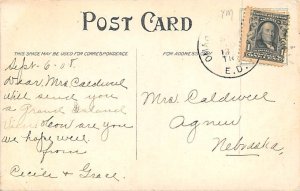 POST CARD
THIS SPACE MAY BE USED FOR CORRESPONDENCE.
FOR ADDRESS
E.D.
Sept-6-08
Dear Mrs Caldwell
Will send you
a Grand Island
View. How are you
are hope well
from
Cecile & Grace.
Mrs Caldwell
Agnew
Nebraska.